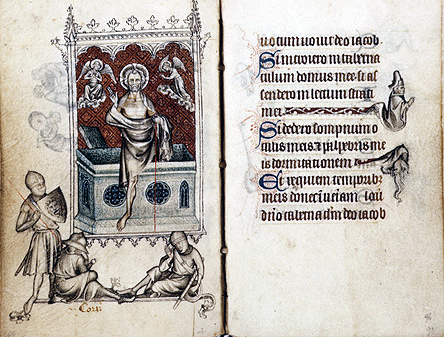 uotum uouit deo iacob.
Si introiero in taberna
culum domus mee si as
cendero in lectum strati
mei
Si dedero sompnum o
culis meis & palpebris me
is dormitationem
Et requiem temporib
meis donec inueniam
deo iacob